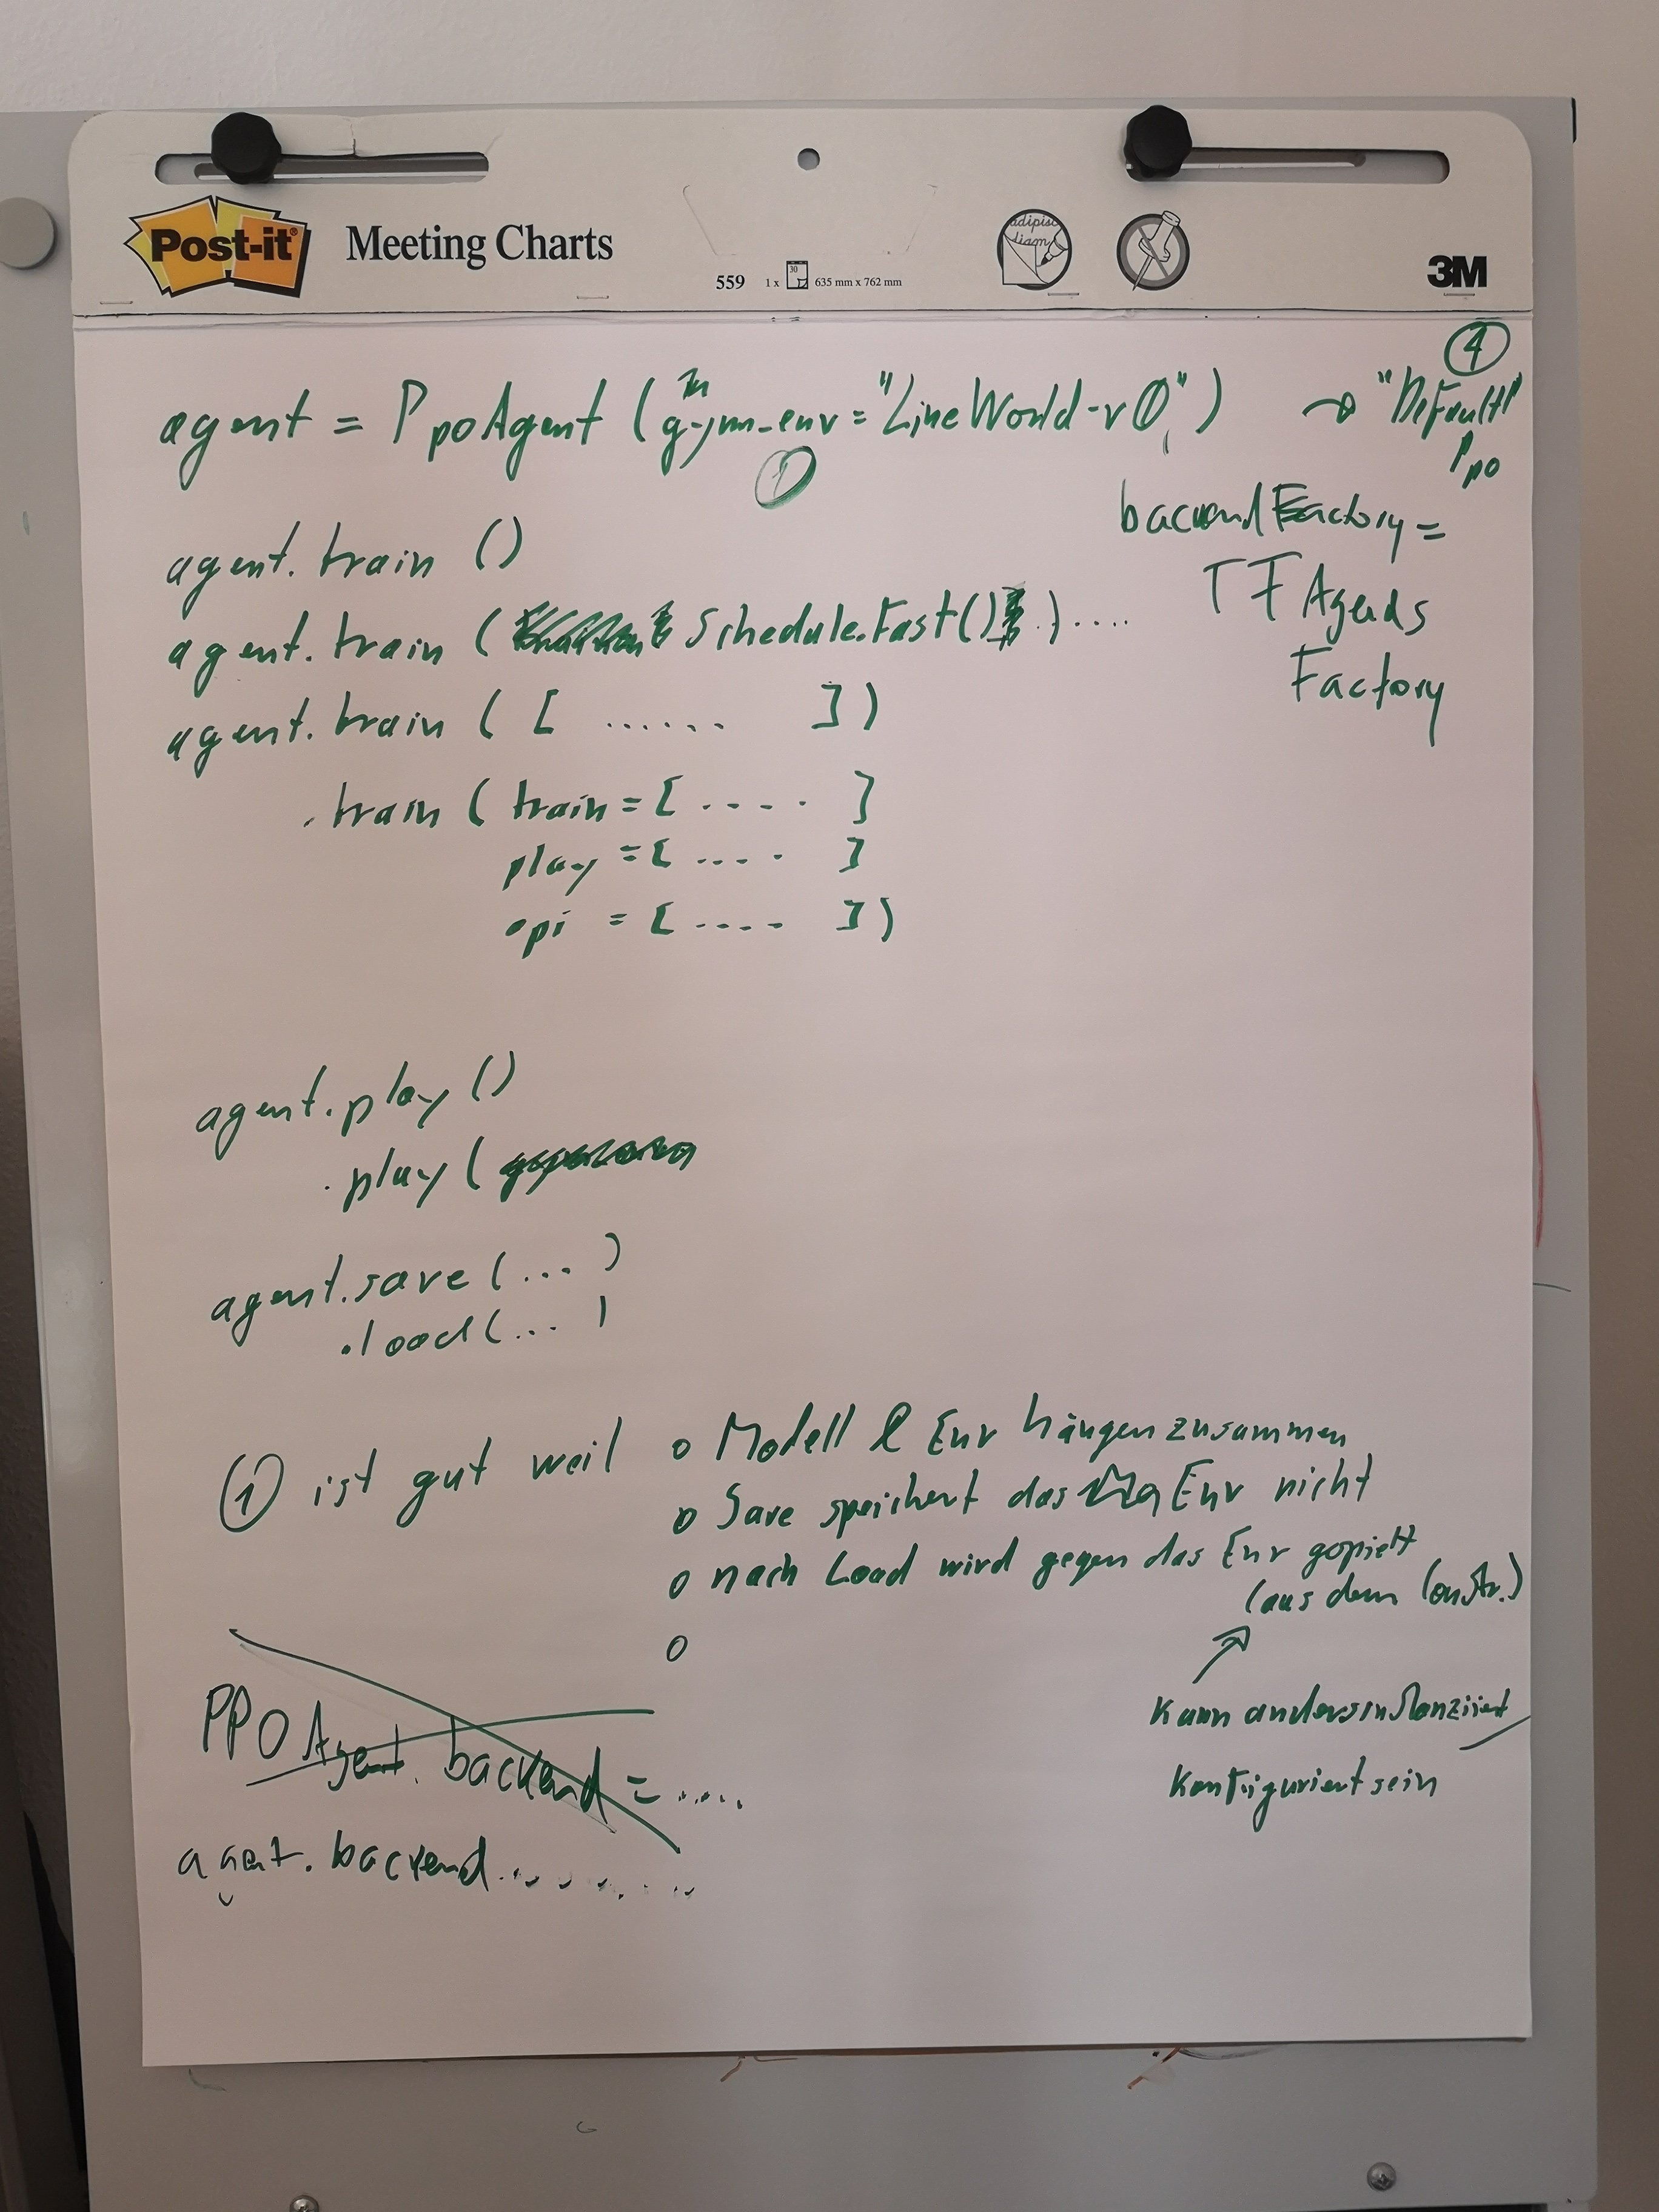 Post-it® Meeting Charts
559 1 x 30 635 mm x 762 mm
3M
4
agent = PpoAgent ( gym_env = "LineWorld-v0" ) → "Default" Ppo
1
backendFactory =
TF Agents
Factory
agent. train ()
agent. train ( Schedule.Fast() ) ....
agent. train ( [ ...... ] )
. train ( train = [ .... ]
play = [ .... ]
= [ .... ] )
agent. play ()
. play (
agent. save ( ... )
. load ( ... )
1 ist gut weil o Modell & Env hängen zusammen
o Save speichert das Env nicht
o nach Load wird gegen das Env gespielt
(aus dem Constr.)
o
kann anders instanziiert
konfiguriert sein
PPO Agent. backend = .....
agent. backend. .......